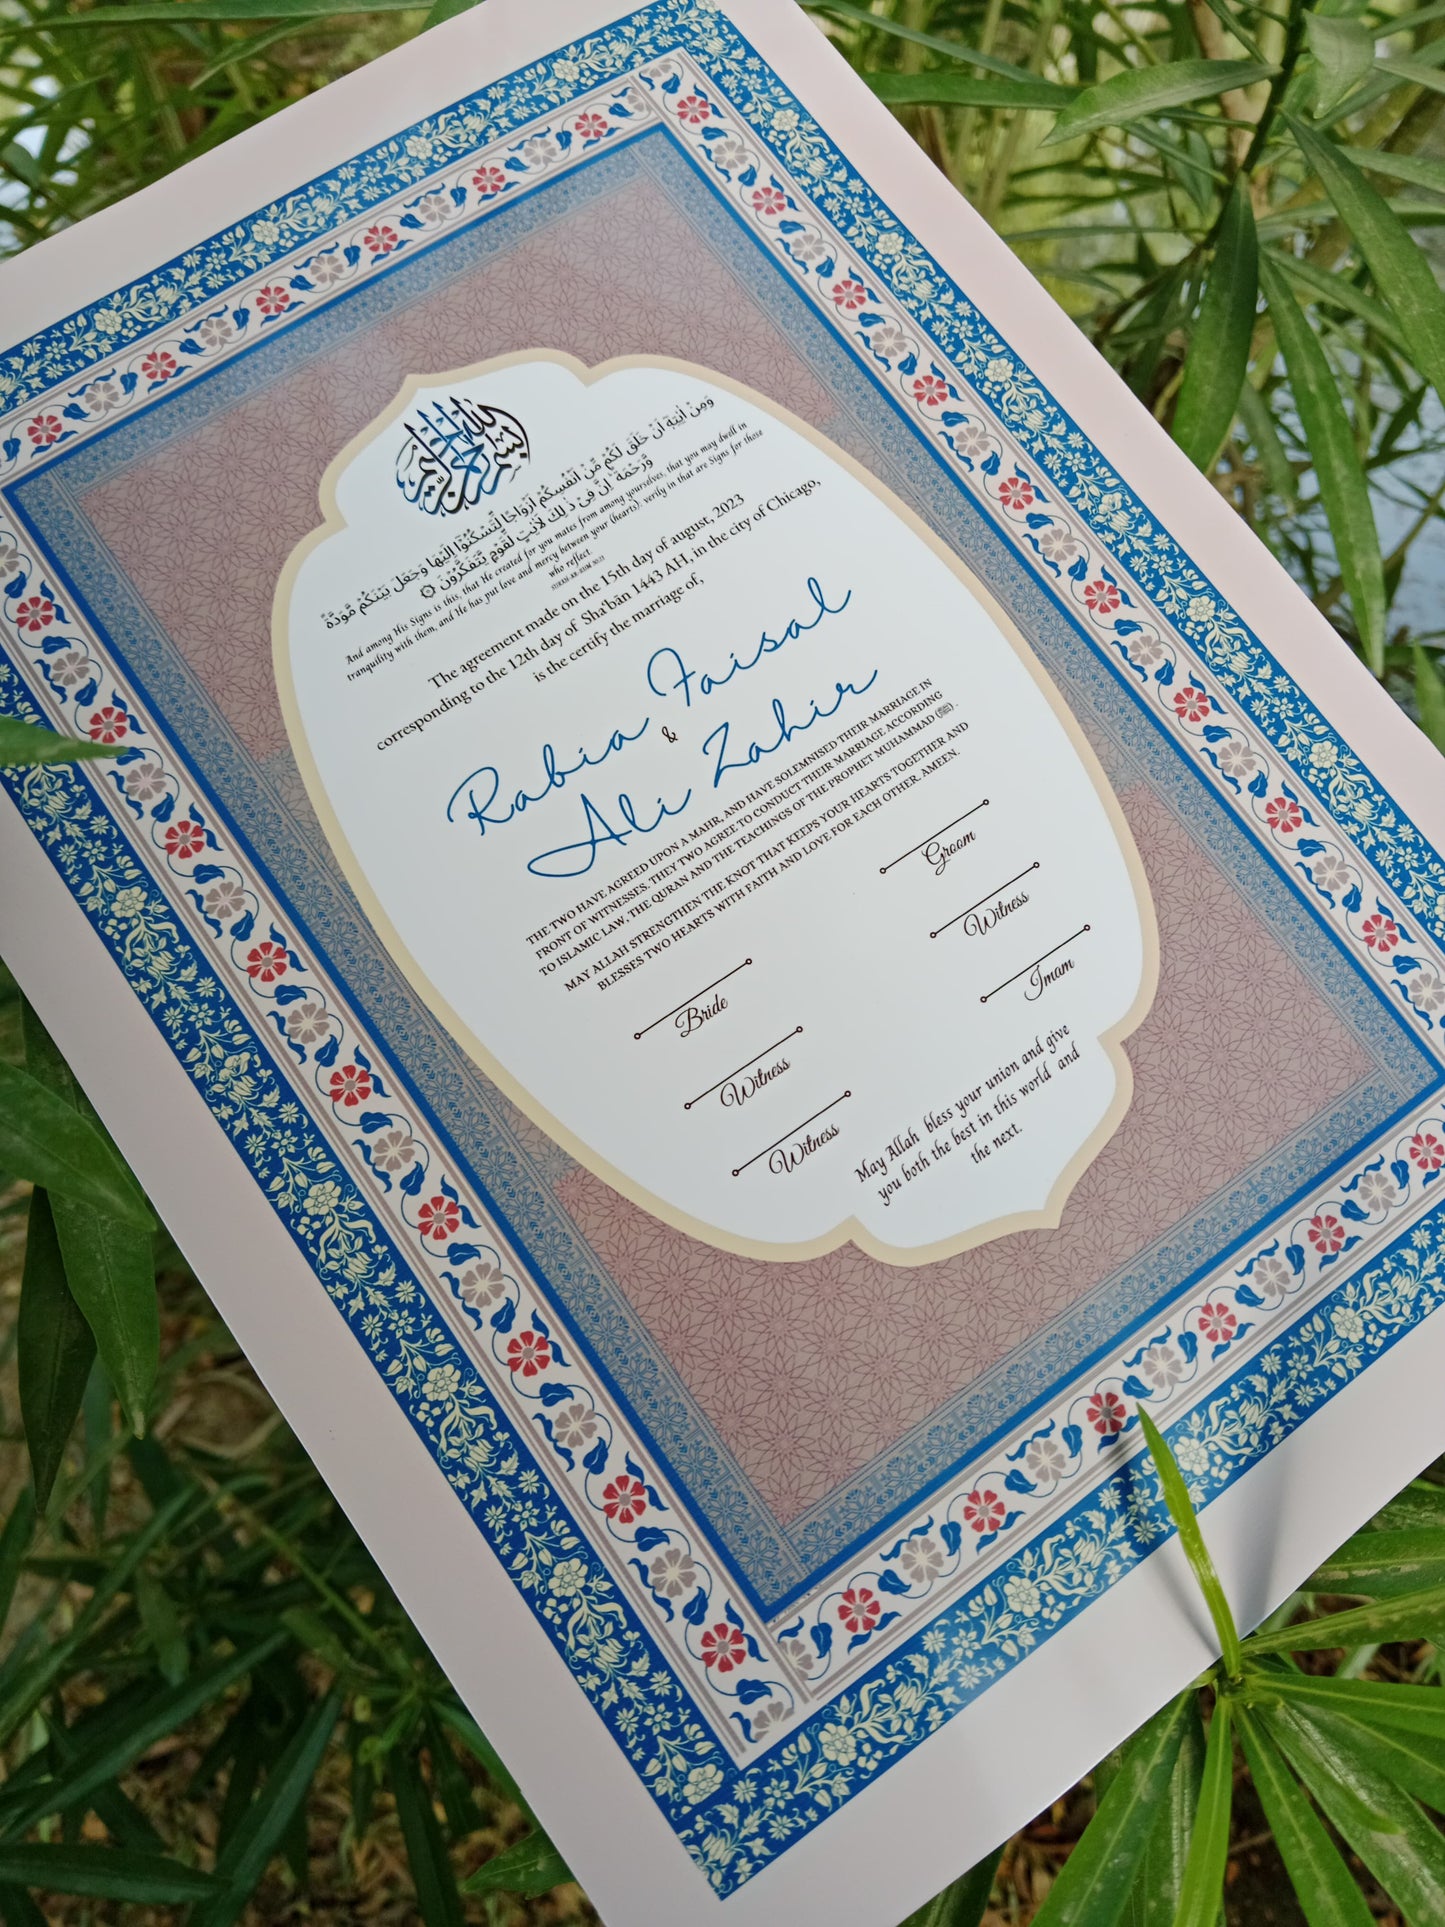 بسم الله الرحمن الرحيم
وَمِنْ اٰيٰتِهٖٓ اَنْ خَلَقَ لَكُمْ مِّنْ اَنْفُسِكُمْ اَزْوَاجًا لِّتَسْكُنُوْٓا اِلَيْهَا وَجَعَلَ بَيْنَكُمْ مَّوَدَّةً
وَّرَحْمَةً ۗ اِنَّ فِيْ ذٰلِكَ لَاٰيٰتٍ لِّقَوْمٍ يَّتَفَكَّرُوْنَ
And among His Signs is this, that He created for you mates from among yourselves, that you may dwell in
tranquility with them, and He has put love and mercy between your (hearts): verily in that are Signs for those
who reflect.
SURAH AR-RUM 30:21
The agreement made on the 15th day of august, 2023
corresponding to the 12th day of Sha'bān 1443 AH, in the city of Chicago,
is the certify the marriage of,
Rabia Faisal
&
Ali Zahir
THE TWO HAVE AGREED UPON A MAHR, AND HAVE SOLEMNISED THEIR MARRIAGE IN
FRONT OF WITNESSES. THEY TWO AGREE TO CONDUCT THEIR MARRIAGE ACCORDING
TO ISLAMIC LAW, THE QURAN AND THE TEACHINGS OF THE PROPHET MUHAMMAD (ﷺ).
MAY ALLAH STRENGTHEN THE KNOT THAT KEEPS YOUR HEARTS TOGETHER AND
BLESSES TWO HEARTS WITH FAITH AND LOVE FOR EACH OTHER. AMEEN.
Bride
Groom
Witness
Witness
Witness
Imam
May Allah bless your union and give
you both the best in this world and
the next.